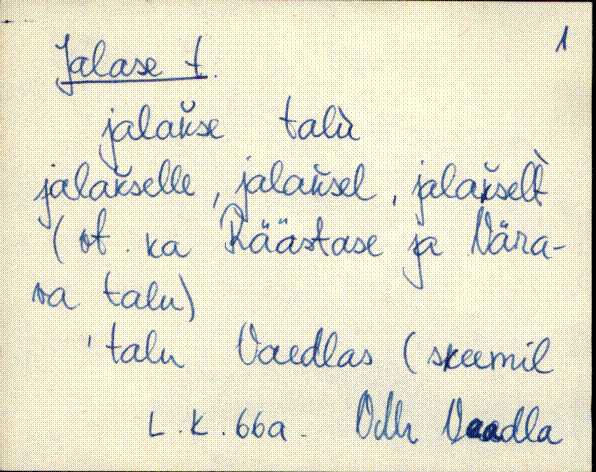 1
Jalase t.
jalak̆se talù
jalak̆selle, jalak̆sel, jalak̆selt̀
(vt. ka Räästase ja Vära-
va talu)
'talu Vaedlas (skeemil
L.K. 66a. Vaadla